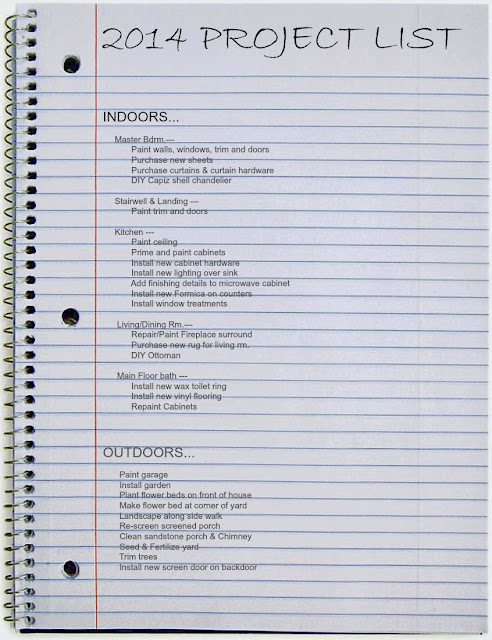 2014 PROJECT LIST
INDOORS...
Master Bdrm.---
Paint walls, windows, trim and doors
Purchase new sheets
Purchase curtains & curtain hardware
DIY Capiz shell chandelier
Stairwell & Landing ---
Paint trim and doors
Kitchen ---
Paint ceiling
Prime and paint cabinets
Install new cabinet hardware
Install new lighting over sink
Add finishing details to microwave cabinet
Install new Formica on counters
Install window treatments
Living/Dining Rm.---
Repair/Paint Fireplace surround
Purchase new rug for living rm.
DIY Ottoman
Main Floor bath ---
Install new wax toilet ring
Install new vinyl flooring
Repaint Cabinets
OUTDOORS...
Paint garage
Install garden
Plant flower beds on front of house
Make flower bed at corner of yard
Landscape along side walk
Re-screen screened porch
Clean sandstone porch & Chimney
Seed & Fertilize yard
Trim trees
Install new screen door on backdoor